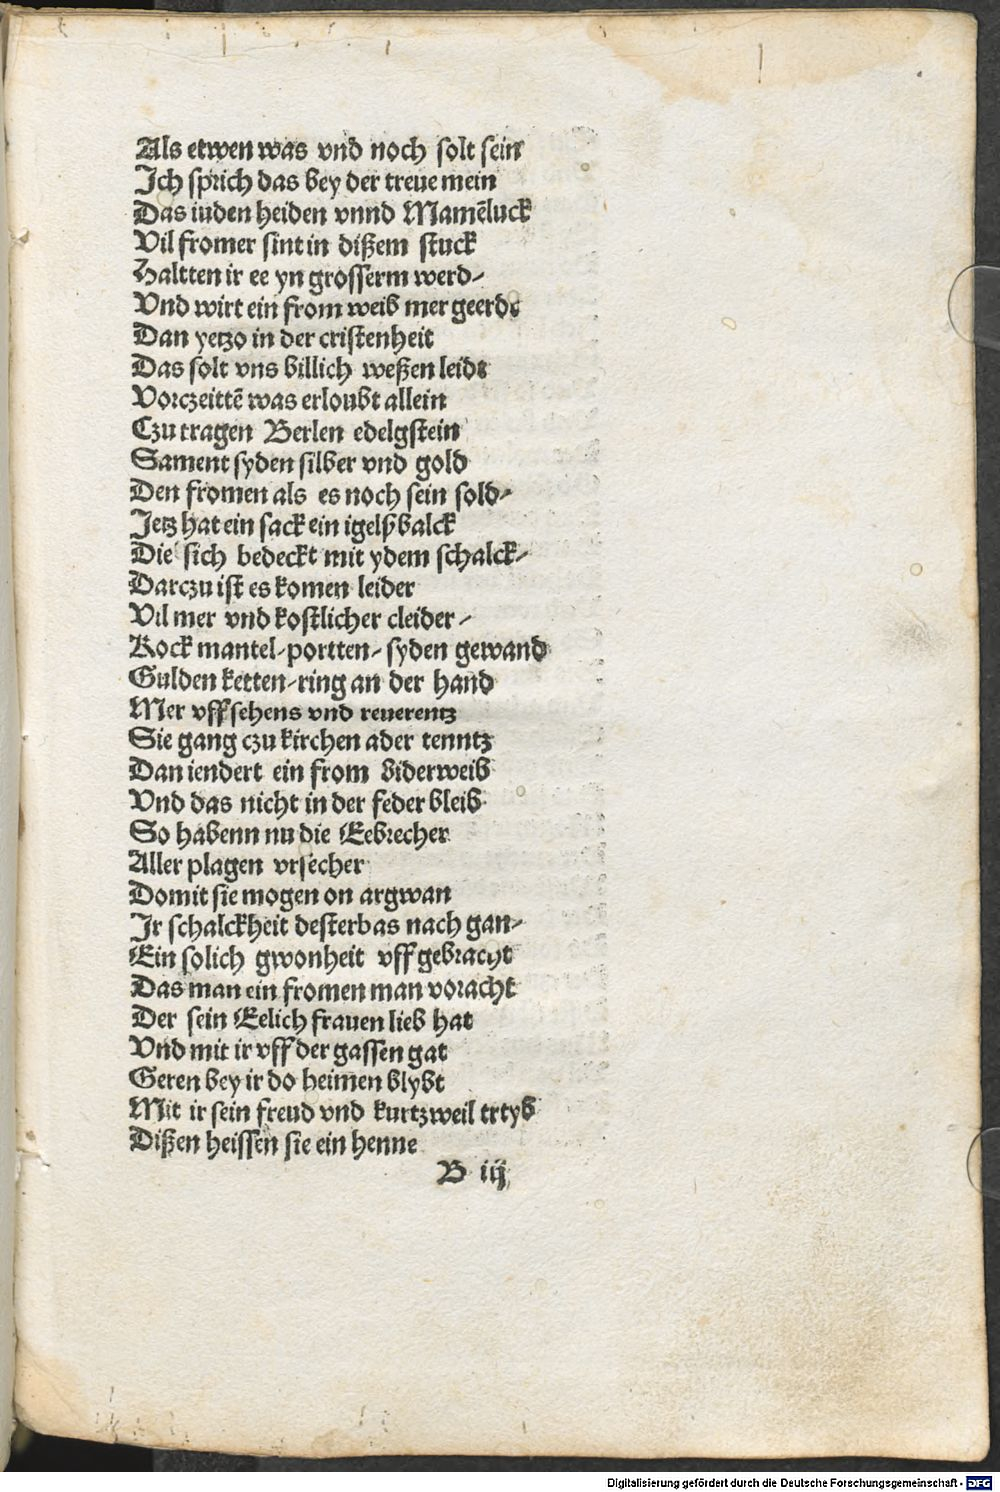 Als etwen was vnd noch solt sein
Ich sprich das bey der treue mein
Das iuden heiden vnnd Mamēluck
Vil fromer sint in dißem stuck
Haltten ir ee yn grosserm werd-
Vnd wirt ein from weib mer geerdt
Dan yetzo in der cristenheit
Das solt vns billich weßen leidt
Vorczeittē was erloubt allein
Czu tragen Berlen edelgstein
Sament syden silber vnd gold
Den fromen als es noch sein sold-
Jetz hat ein sack ein igelßbalck
Die sich bedeckt mit ydem schalck-
Darczu ist es komen leider
Vil mer vnd kostlicher cleider-
Rock mantel-portten-syden gewand
Gulden ketten-ring an der hand
Mer vffsehens vnd reuerentz
Sie gang czu kirchen ader tenntz
Dan iendert ein from biderweib
Vnd das nicht in der feder bleib
So habenn nu die Eebrecher
Aller plagen vrsecher
Domit sie mogen on argwan
Ir schalckheit desterbas nach gan-
Ein solich gwonheit vff gebracht
Das man ein fromen man voracht
Der sein Eelich frauen lieb hat
Vnd mit ir vff der gassen gat
Geren bey ir do heimen blybt
Mit ir sein freud vnd kurtzweil trtyb
Dißen heissen sie ein henne
B iij
Digitalisierung gefördert durch die Deutsche Forschungsgemeinschaft - DFG